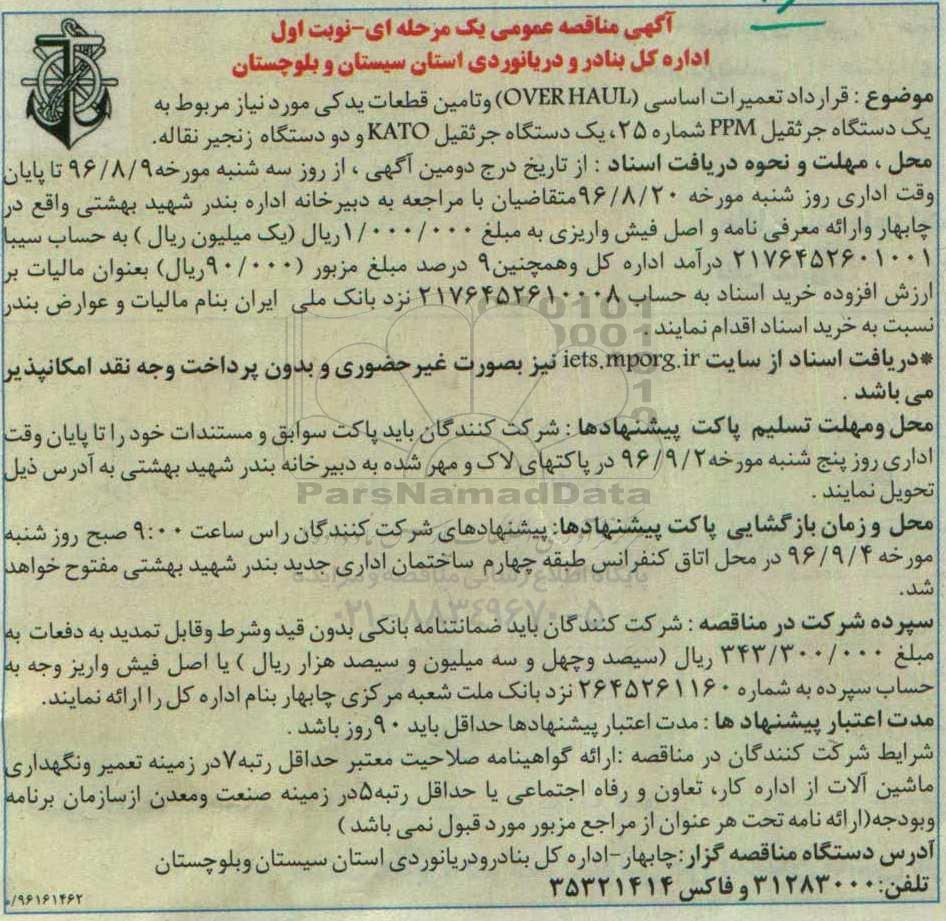 آگهی مناقصه عمومی یک مرحله ای-نوبت اول
اداره کل بنادر و دریانوردی استان سیستان و بلوچستان
موضوع : قرارداد تعمیرات اساسی (OVER HAUL) وتامین قطعات یدکی مورد نیاز مربوط به
یک دستگاه جرثقیل PPM شماره ۲۵، یک دستگاه جرثقیل KATO و دو دستگاه زنجیر نقاله.
محل ، مهلت و نحوه دریافت اسناد : از تاریخ درج دومین آگهی ، از روز سه شنبه مورخه ۹۶/۸/۹ تا پایان
وقت اداری روز شنبه مورخه ۹۶/۸/۲۰ متقاضیان با مراجعه به دبیرخانه اداره بندر شهید بهشتی واقع در
چابهار وارائه معرفی نامه و اصل فیش واریزی به مبلغ ۱/۰۰۰/۰۰۰ریال (یک میلیون ریال ) به حساب سیبا
۲۱۷۶۴۵۲۶۰۱۰۰۱ درآمد اداره کل وهمچنین۹ درصد مبلغ مزبور (۹۰/۰۰۰ریال) بعنوان مالیات بر
ارزش افزوده خرید اسناد به حساب ۲۱۷۶۴۵۲۶۱۰۰۰۸ نزد بانک ملی ایران بنام مالیات و عوارض بندر
نسبت به خرید اسناد اقدام نمایند .
*دریافت اسناد از سایت iets.mporg.ir نیز بصورت غیرحضوری و بدون پرداخت وجه نقد امکانپذیر
می باشد .
محل ومهلت تسلیم پاکت پیشنهادها : شرکت کنندگان باید پاکت سوابق و مستندات خود را تا پایان وقت
اداری روز پنج شنبه مورخه۹۶/۹/۲ در پاکتهای لاک و مهر شده به دبیرخانه بندر شهید بهشتی به آدرس ذیل
تحویل نمایند .
ParsNamadData
محل و زمان بازگشایی پاکت پیشنهادها: پیشنهادهای شرکت کنندگان راس ساعت ۹:۰۰ صبح روز شنبه
مورخه ۹۶/۹/۴ در محل اتاق کنفرانس طبقه چهارم ساختمان اداری جدید بندر شهید بهشتی مفتوح خواهد
شد.
پایگاه اطلاع رسانی مناقصه و مزایده
۰۲۱-۸۸۳۴۹۶۷۰-۵
سپرده شرکت در مناقصه : شرکت کنندگان باید ضمانتنامه بانکی بدون قید وشرط وقابل تمدید به دفعات به
مبلغ ۳۴۳/۳۰۰/۰۰۰ ریال (سیصد وچهل و سه میلیون و سیصد هزار ریال ) یا اصل فیش واریز وجه به
حساب سپرده به شماره ۲۶۴۵۲۶۱۱۶۰ نزد بانک ملت شعبه مرکزی چابهار بنام اداره کل را ارائه نمایند.
مدت اعتبار پیشنهاد ها : مدت اعتبار پیشنهادها حداقل باید ۹۰روز باشد .
شرایط شرکت کنندگان در مناقصه :ارائه گواهینامه صلاحیت معتبر حداقل رتبه۷در زمینه تعمیر ونگهداری
ماشین آلات از اداره کار، تعاون و رفاه اجتماعی یا حداقل رتبه۵در زمینه صنعت ومعدن ازسازمان برنامه
وبودجه(ارائه نامه تحت هر عنوان از مراجع مزبور مورد قبول نمی باشد )
آدرس دستگاه مناقصه گزار :چابهار-اداره کل بنادرودریانوردی استان سیستان وبلوچستان
تلفن: ۳۱۲۸۳۰۰۰ و فاکس ۳۵۳۲۱۴۱۴
۰/۹۶۱۶۱۴۶۲